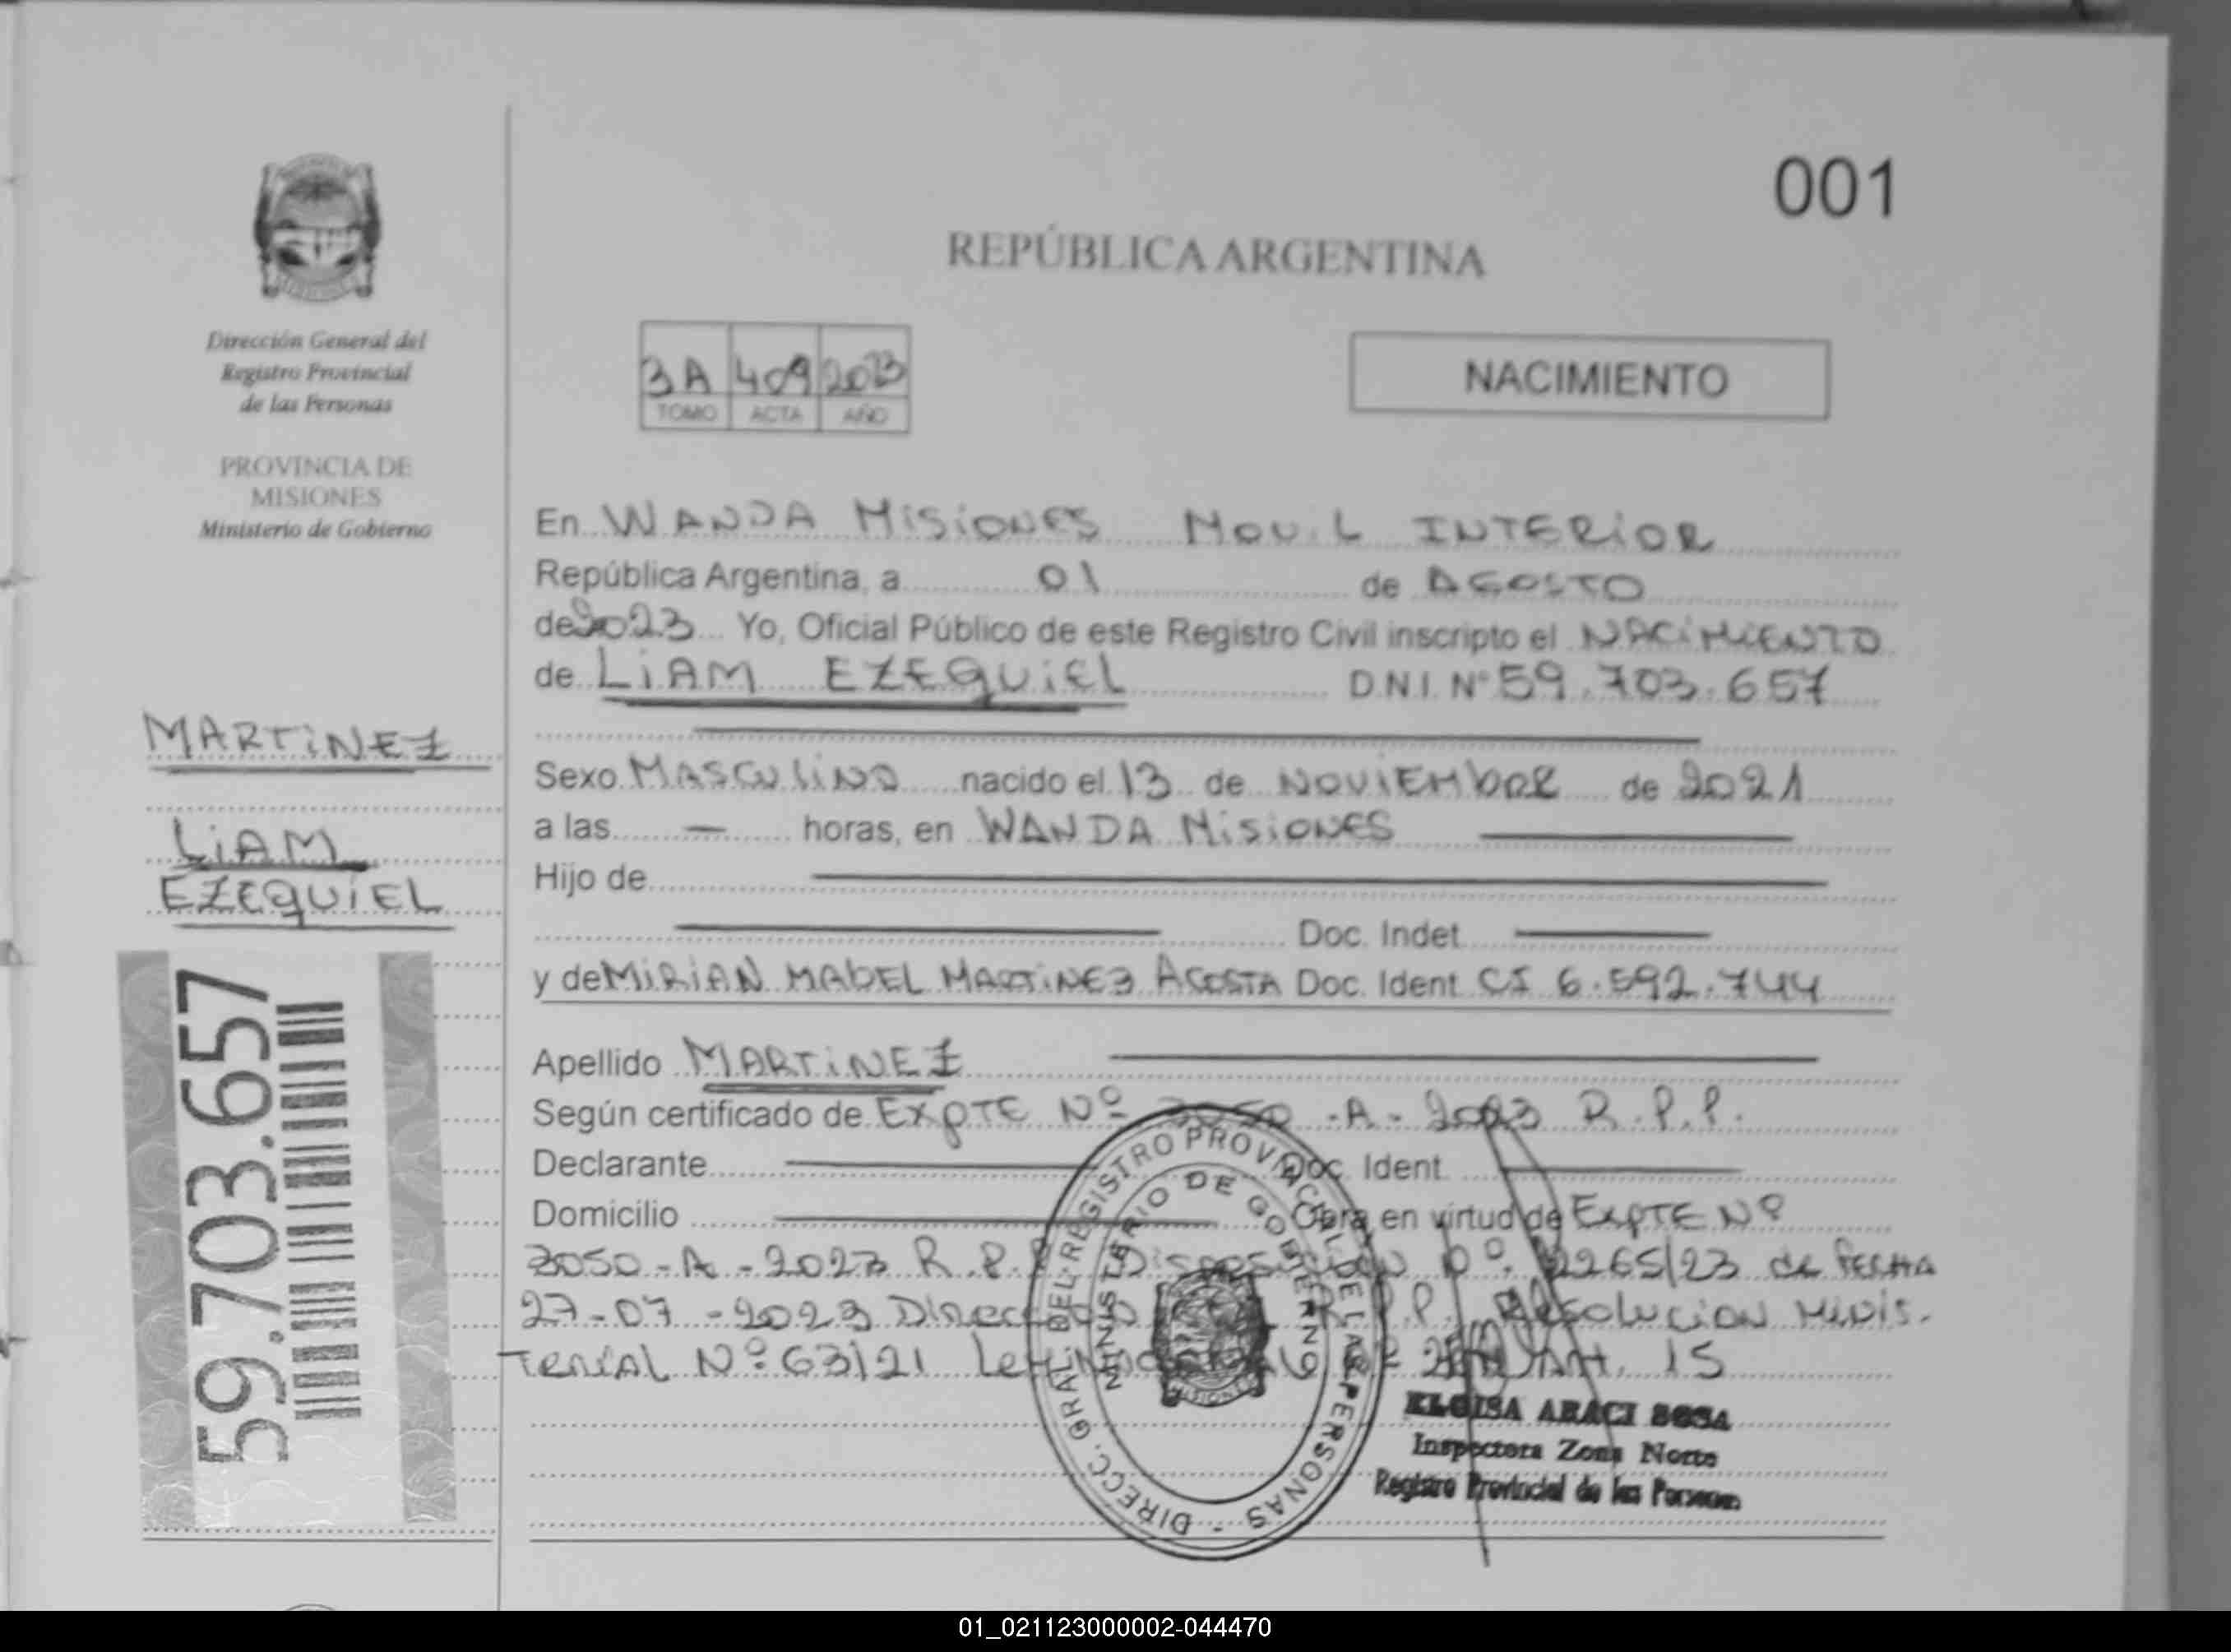 001
REPÚBLICA ARGENTINA
Dirección General del
Registro Provincial
de las Personas
PROVINCIA DE
MISIONES
Ministerio de Gobierno
3A 409 2023
TOMO ACTA AÑO
NACIMIENTO
En WANDA MISIONES MOVIL INTERIOR
República Argentina, a 01 de AGOSTO
de 2023 Yo, Oficial Público de este Registro Civil inscripto el NACIMIENTO
de LIAM EZEQUIEL D.N.I. N° 59.703.657
MARTINEZ
LIAM
EZEQUIEL
59.703.657
Sexo MASCULINO nacido el 13 de NOVIEMBRE de 2021
a las — horas, en WANDA MISIONES
Hijo de
Doc. Indet
y de MIRIAN MABEL MARTINEZ ACOSTA Doc. Ident CI 6.592.744
Apellido MARTINEZ
Según certificado de EXPTE Nº 3050 -A- 2023 R.P.P.
Declarante Doc. Ident.
Domicilio Obra en virtud de EXPTE Nº
3050-A-2023 R.P.P. Disposición Nº 2265/23 de FECHA
27-07-2023 Dirección R.P.P. Resolucion Minis.
Terial Nº 63/21 15
DIRECC. GRAL DEL REGISTRO PROVINCIAL DE LAS PERSONAS -
MINISTERIO DE GOBIERNO
MISIONES
ELOISA ARACI SOSA
Inspectora Zona Norte
Registro Provincial de las Personas
01_021123000002-044470